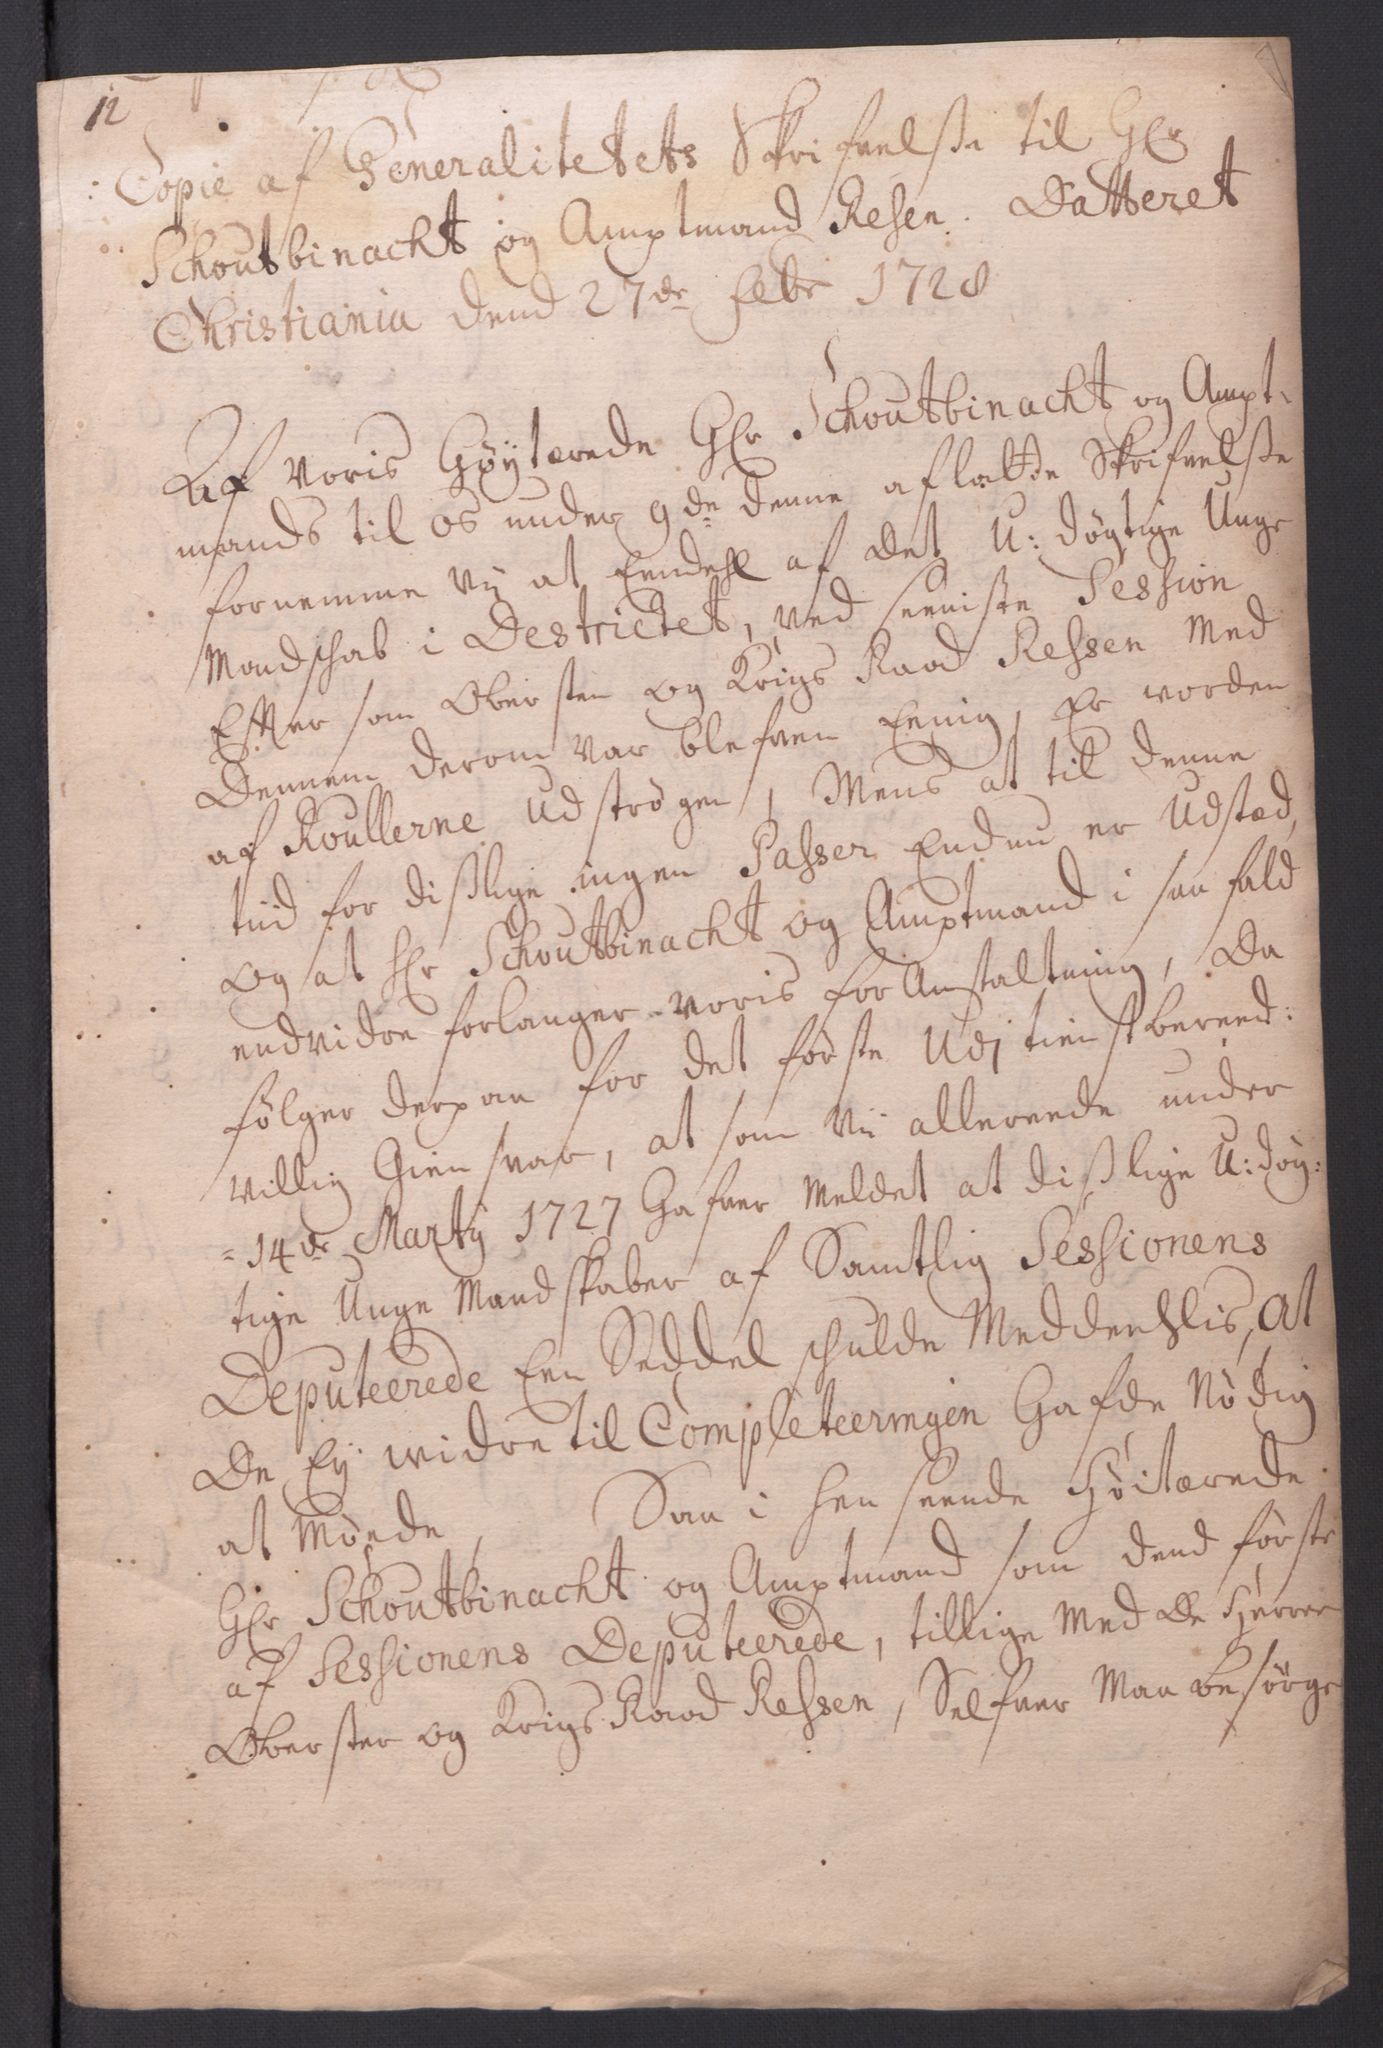 12
Copie af Generalitetets Skrifvelse til Hr
Schoutbinacht og Amptmand Resen. Datteret
Christiania dend 27de Febr 1728
Af Voris Høyterede Hr Schoutbinacht og Ampt-
mands til os under 9de denne afladte Skrifvelse
fornemme vij at Eendehl af det U: døgtige Unge
Mandschab i Destrictet, ved seeniste Session
Efter som Obersten og Krigs Raad Ressen Med
Dennem derom var blefven Eenig, Er worden
af Roullerne Udströgen, Mens at til denne
tiid for dislige ingen Passer Endnu er Udstæd,
og at Hr Schoutbinacht og Amptmand i saa fald
endvidre forlanger voris for Anstaltning, Da
følger derpaa for det første Udj tienstbereed:
villig Giensvar, at som vij allereede under
14de Martij 1727 Hafver Meldet at dislige U: døg:
tige Unge Mandskaber af Samtlig Sessionens
Deputeerede Een Seddel schulde Meddeehlis, at
De Ej widre til Completeeringen Hafde Nödig
at Möede, Saa i hen seende Höitærede
Hr Schoutbinacht og Amptmand som dend förste
af Sessionens Deputeerede, tillige Med De Herrer
Oberster og Krigs Raad Ressen, Selfver Maa besörge